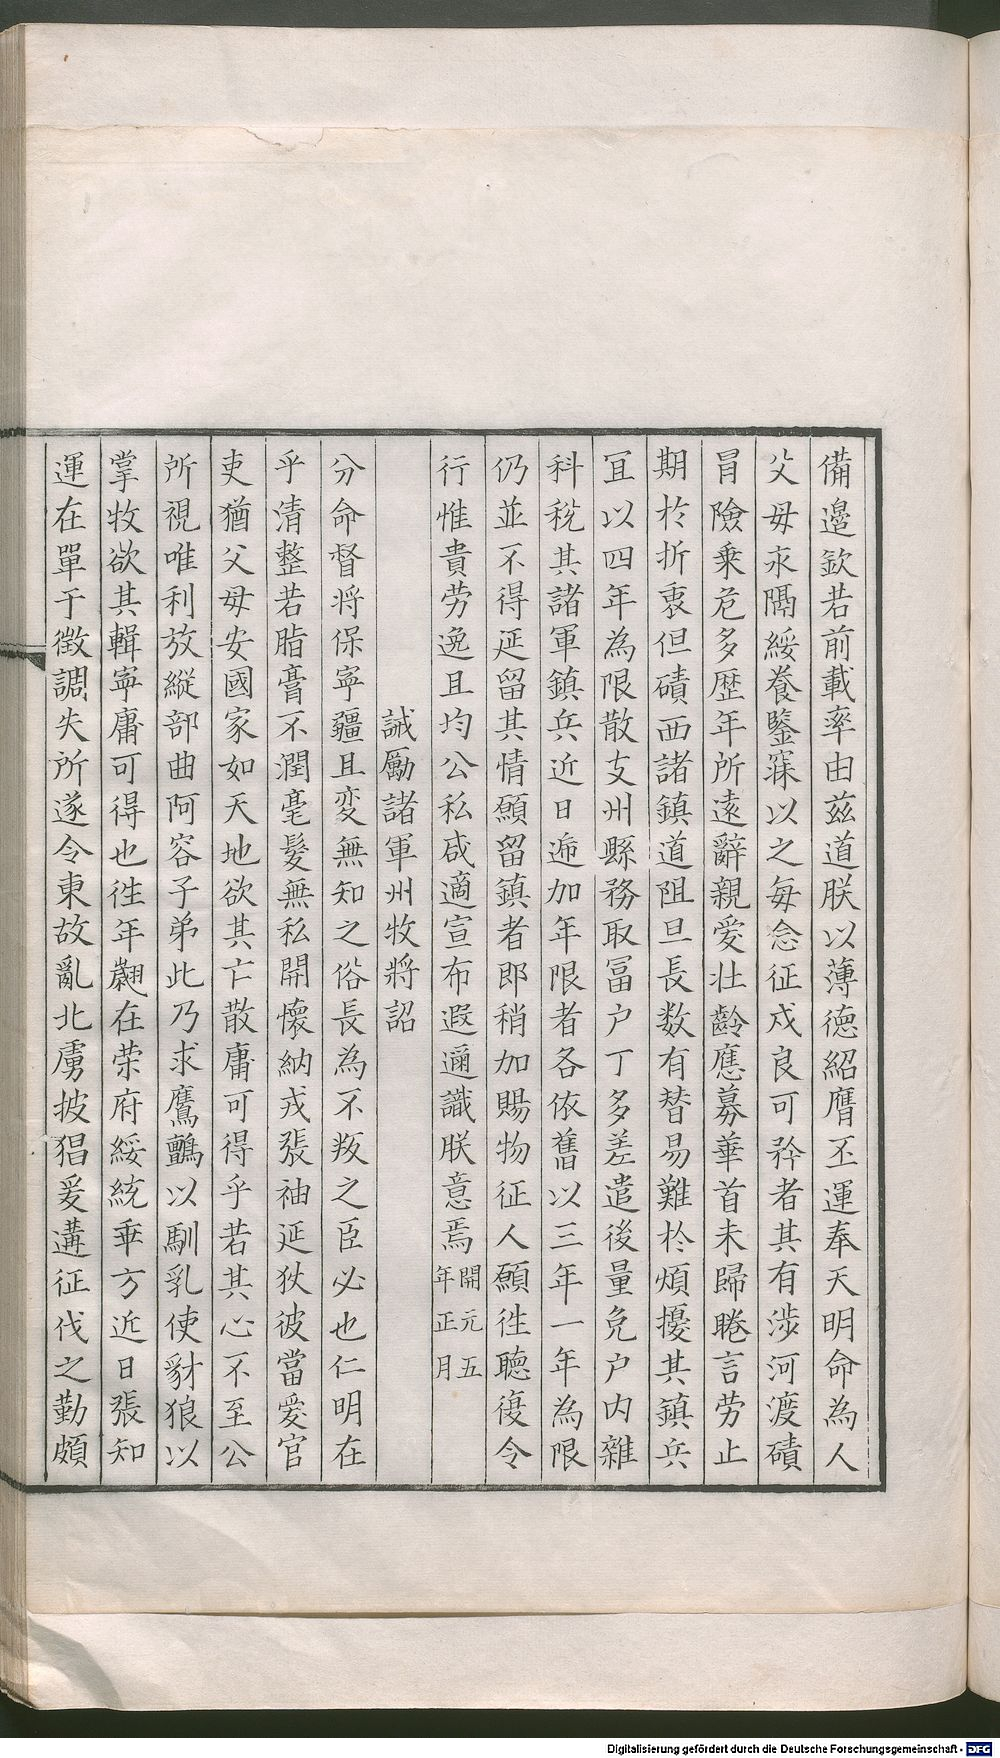 備邊欽若前載率由茲道朕以薄德紹膺丕運奉天明命為人
父母永隔綏養鑒寐以之每念征戍良可矜者其有涉河渡磧
冐險乗危多歴年所遠辭親愛壯齡應募華首未歸睠言劳止
期於折衷但磧西諸鎮道阻且長数有替易難於煩擾其鎮兵
冝以四年為限散支州縣務取冨户丁多差遣後量免户内雜
科稅其諸軍鎮兵近日遞加年限者各依舊以三年一年為限
仍並不得延留其情願留鎮者即稍加賜物征人願徃聽復令
行惟貴劳逸且均公私咸適宣布遐邇識朕意焉開元五年正月
誡勵諸軍州牧將詔
分命督將保寧疆且変無知之俗長為不叛之臣必也仁明在
乎清整若脂膏不潤毫髮無私開懷納戎張袖延狄彼當爱官
吏猶父母安國家如天地欲其亡散庸可得乎若其心不至公
所視唯利放縱部曲阿容子弟此乃求鷹鸇以馴乳使豺狼以
掌牧欲其輯寧庸可得也徃年翽在荣府綏統乖方近日張知
運在單于徴調失所遂令東故亂北虜披猖爰遘征伐之勤頗
Digitalisierung gefördert durch die Deutsche Forschungsgemeinschaft - DFG